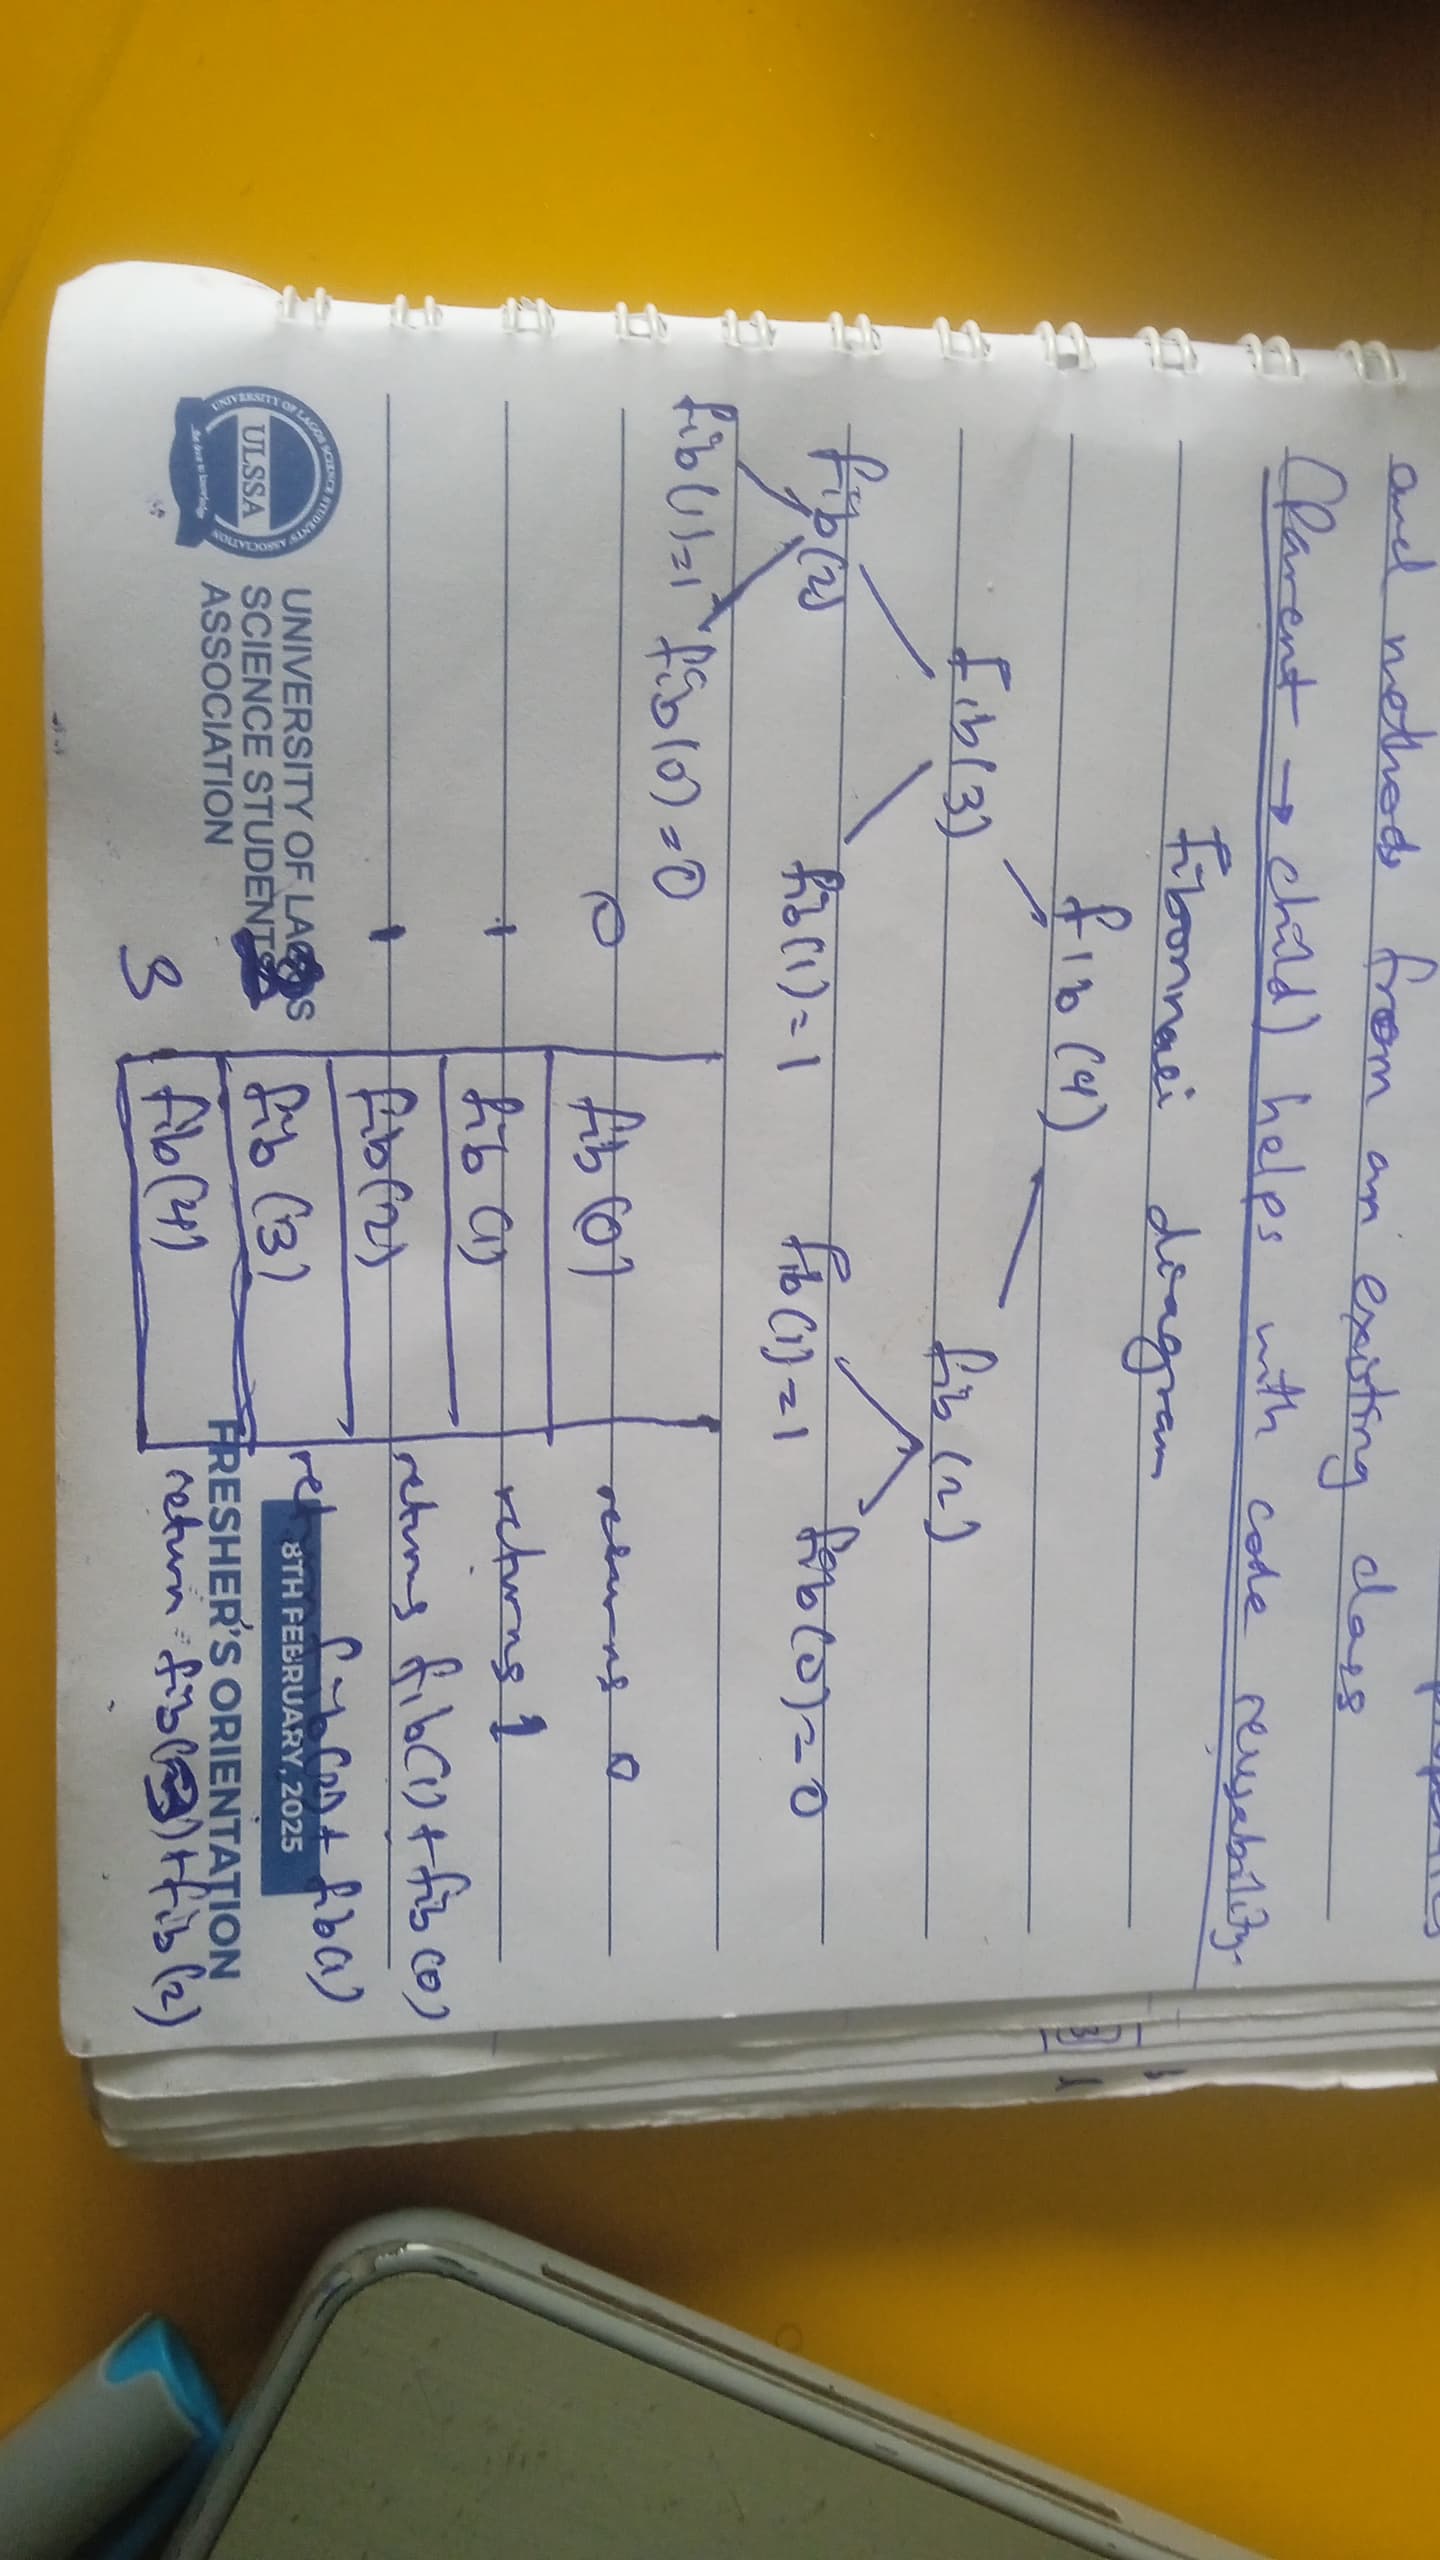 and methods from an existing class
(Parent → child) helps with code reusability.
Fibonnaci diagram
fib(4)
fib(3) fib(2)
fib(2) fib(1)=1 fib(1)=1 fib(0)=0
fib(1)=1 fib(0)=0
0 fib(0) returns 0
1 fib(1) returns 1
1 fib(2) returns fib(1)+fib(0)
fib(3) fib(2)+fib(1)
3 fib(4) return fib(3)+fib(2)
UNIVERSITY OF LAGOS SCIENCE STUDENTS' ASSOCIATION
ULSSA
UNIVERSITY OF LAGOS
SCIENCE STUDENTS
ASSOCIATION
8TH FEBRUARY, 2025
FRESHER'S ORIENTATION